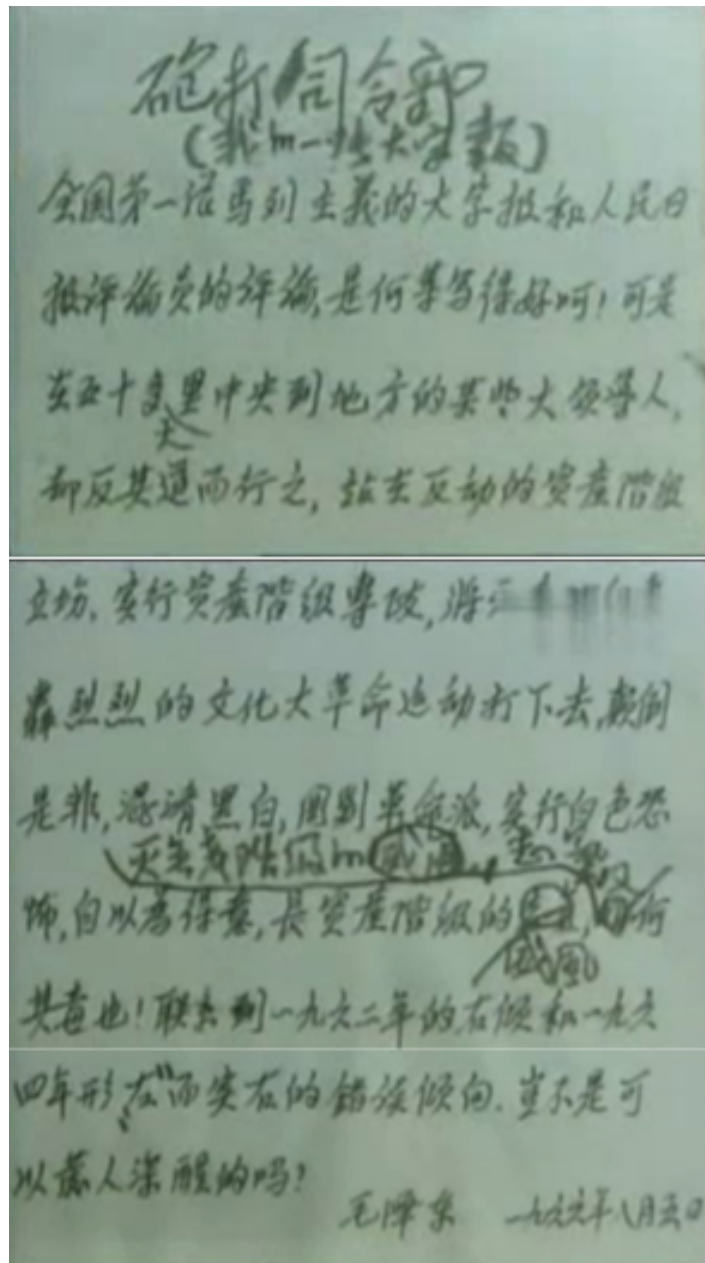 砲打司令部
(我的一张大字报)
全国第一张馬列主義的大字报和人民日
报评论员的评论,是何等写得好呵!可是
在五十多天里中央到地方的某些大领导人,
却反其道而行之,站在反动的资产階级
立场,实行资产階级專政,将
轟烈烈的文化大革命运动打下去,颠倒
是非,混淆黑白,围剿革命派,实行白色恐
灭无产階级的威风,
怖,自以為得意,長资产階级的
威風
其毒也!联系到一九六二年的右倾和一九六
四年形"左"而实右的错误倾向.豈不是可
以發人深醒的吗?
毛泽东 一九六六年八月五日